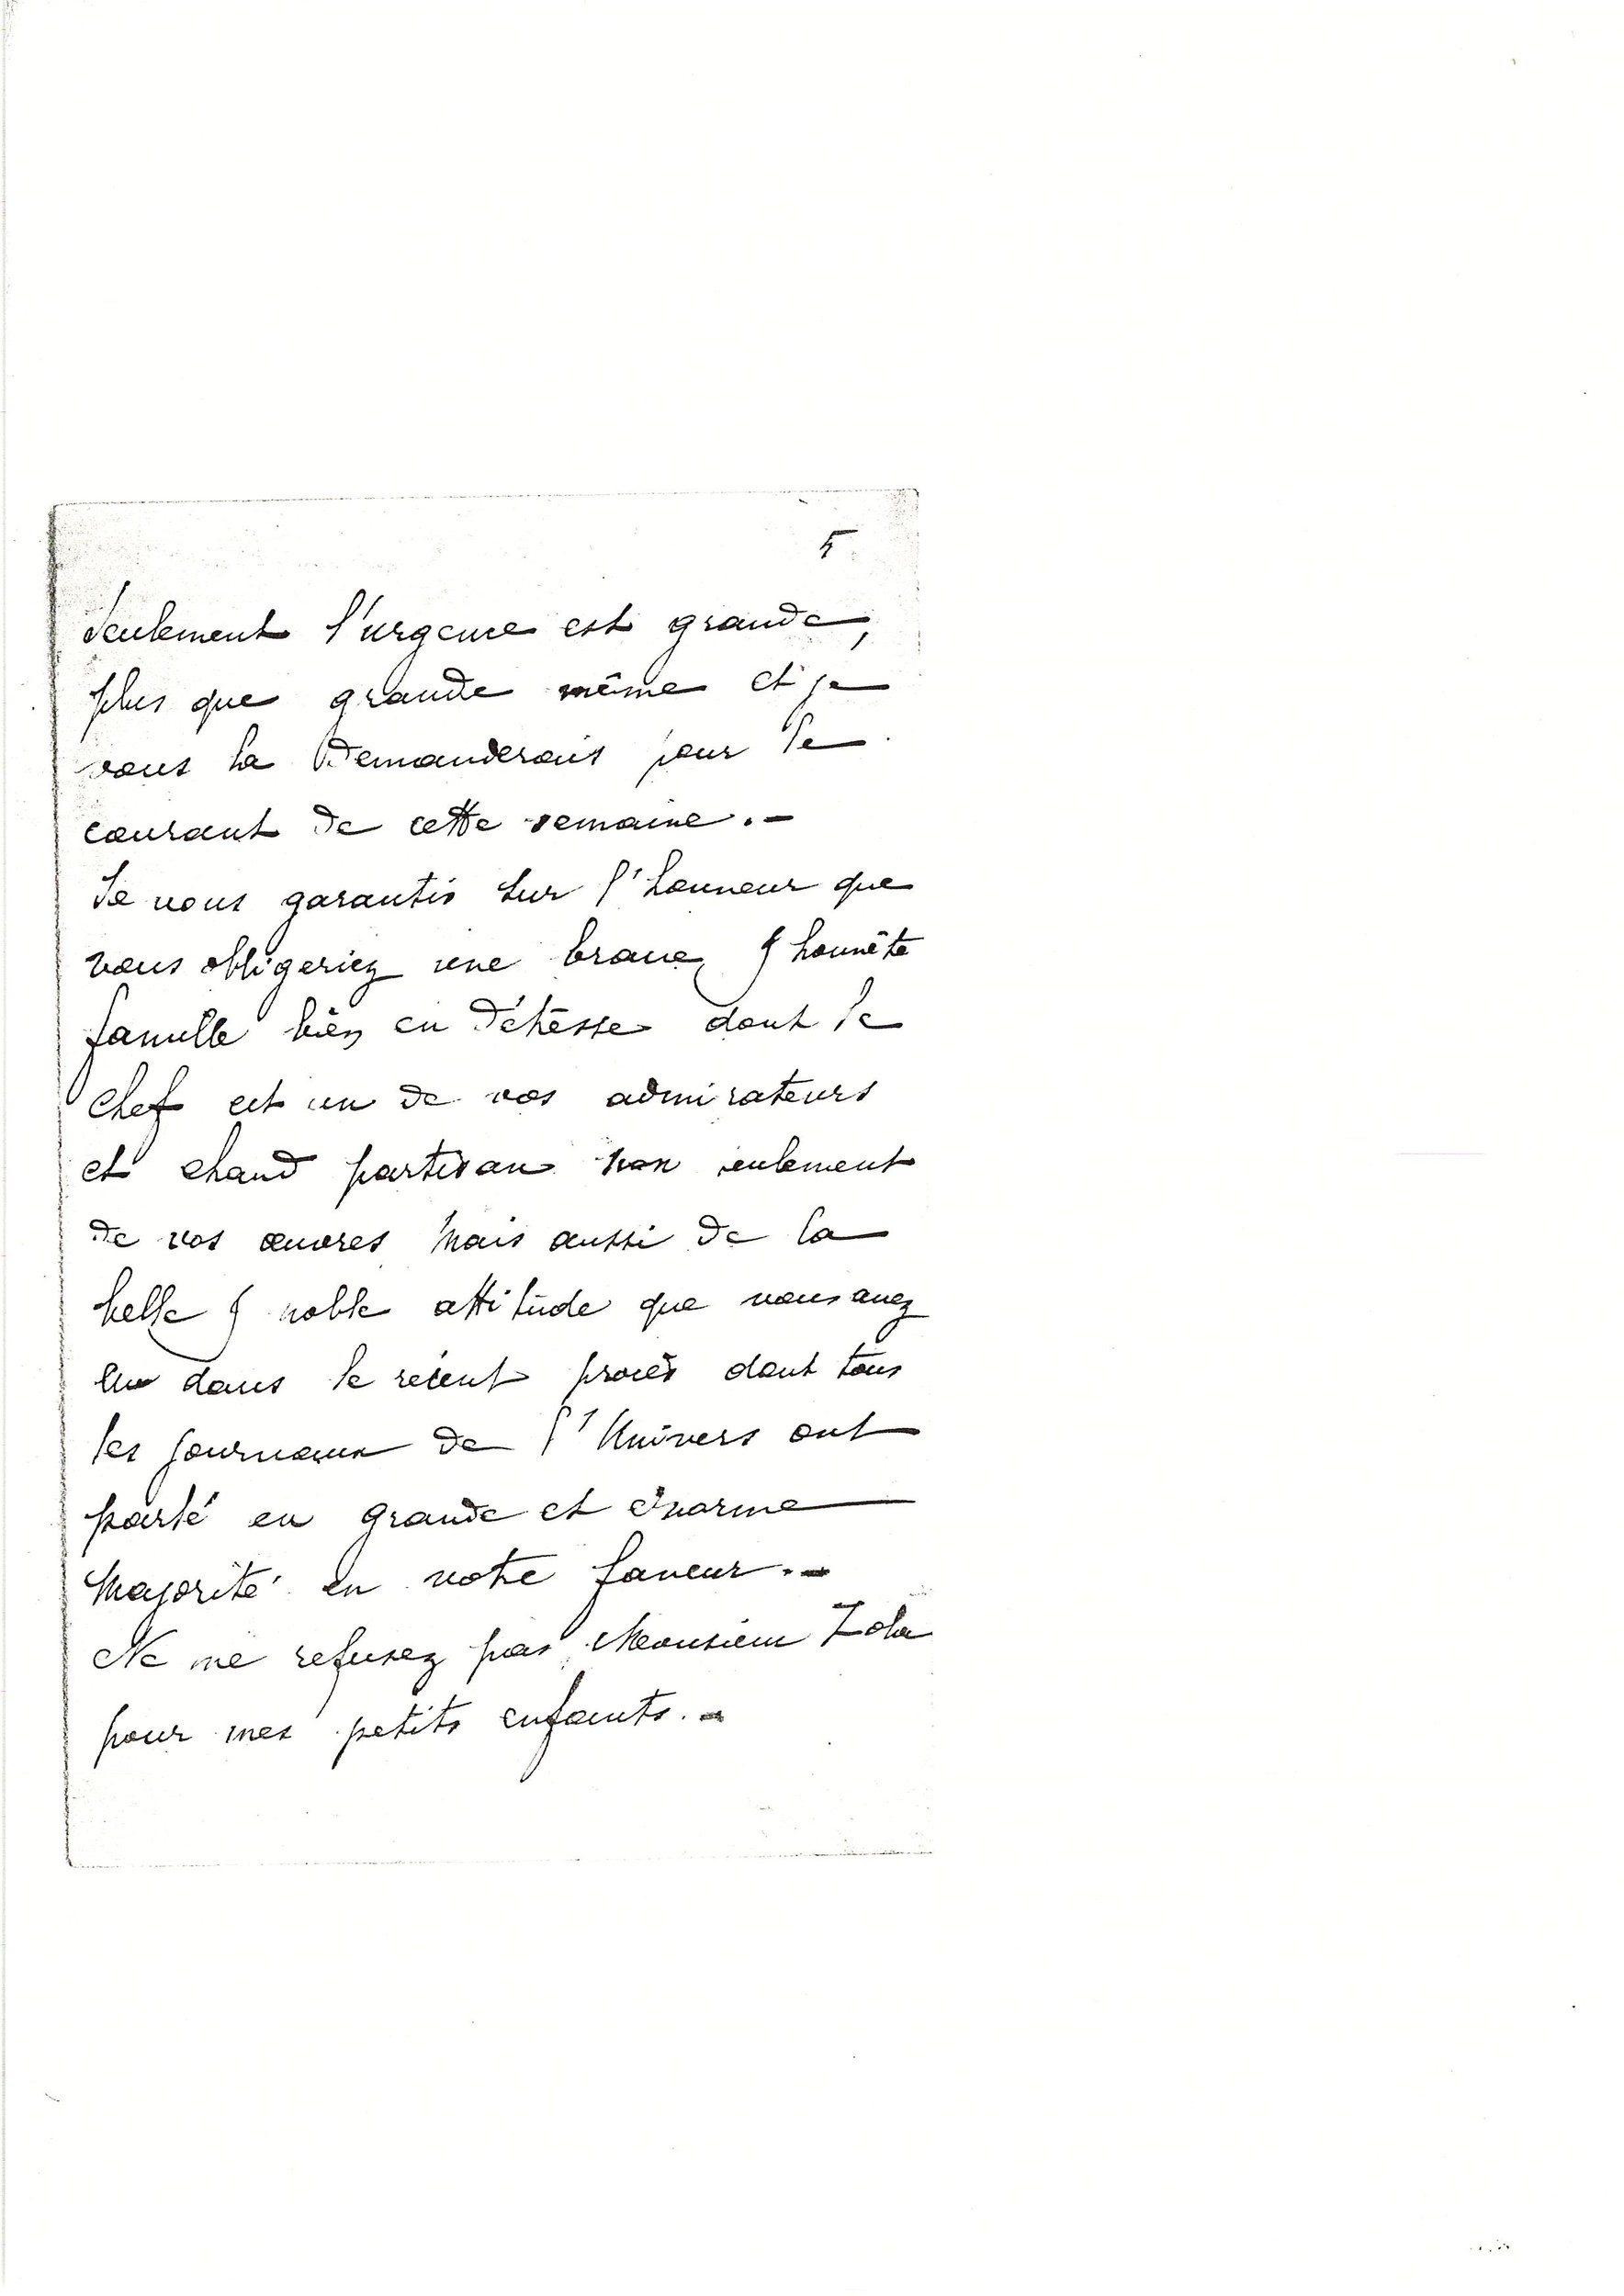 5
Seulement l'urgence est grande,
plus que grande même et je
vous la Demanderais pour le
courant de cette semaine. -
Je vous garantis sur l'honneur que
vous obligeriez une brave & honnête
famille bien en détresse dont le
chef est un de vos admirateurs
et chaud partisan non seulement
de vos œuvres mais aussi de la
belle & noble attitude que vous avez
eue dans le récent procès dont tous
les journaux de l'Univers ont
parlé en grande et énorme
majorité en votre faveur. -
Ne me refusez pas Monsieur Zola
pour mes petits enfants. -